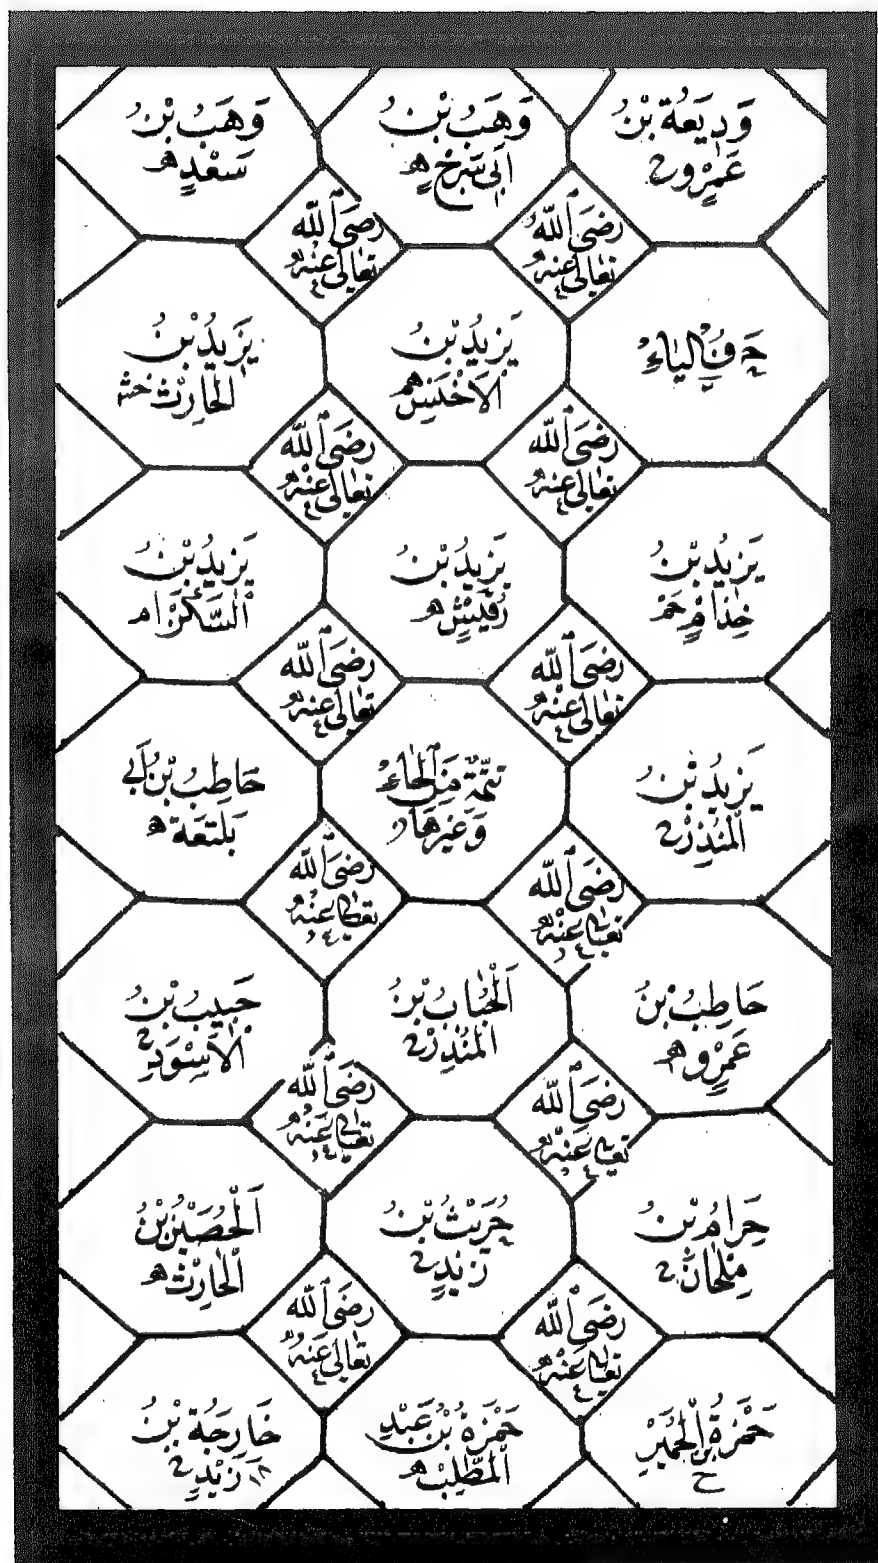 وَدِيعَةُ بْنُ
عَمْرٍو خ
وَهَبُ بْنُ
اَبِي سَرْحٍ ه
وَهَبُ بْنُ
سَعْدٍ ه
رَضِيَ اللّٰه
تَعَالٰى عَنْهُ
رَضِيَ اللّٰه
تَعَالٰى عَنْهُ
حَرْفُ الْيَاءِ
يَزِيدُ بْنُ
الْاَخْنَسِ ه
يَزِيدُ بْنُ
الْحَارِث
رَضِيَ اللّٰه
تَعَالٰى عَنْهُ
رَضِيَ اللّٰه
تَعَالٰى عَنْهُ
يَزِيدُ بْنُ
خِذَامٍ
يَزِيدُ بْنُ
رُقَيْشٍ ه
يَزِيدُ بْنُ
السَّكَنْ
رَضِيَ اللّٰه
تَعَالٰى عَنْهُ
رَضِيَ اللّٰه
تَعَالٰى عَنْهُ
يَزِيدُ بْنُ
الْمُنْذِرْ خ
تَتِمَّةٌ مِنَ الْحَاءِ
وَغَيْرِهَا
حَاطِبُ بْنُ اَبِي
بَلْتَعَة ه
رَضِيَ اللّٰه
تَعَالٰى عَنْهُ
رَضِيَ اللّٰه
تَعَالٰى عَنْهُ
حَاطِبُ بْنُ
عَمْرٍو ه
اَلْحُبَابُ بْنُ
الْمُنْذِرْ خ
حَبِيبُ بْنُ
الْاَسْوَدِ خ
رَضِيَ اللّٰه
تَعَالٰى عَنْهُ
رَضِيَ اللّٰه
تَعَالٰى عَنْهُ
حَرَامُ بْنُ
مِلْحَانْ خ
حُرَيْثُ بْنُ
زَيْدٍ خ
اَلْحُصَيْنُ بْنُ
الْحَارِث ه
رَضِيَ اللّٰه
تَعَالٰى عَنْهُ
رَضِيَ اللّٰه
تَعَالٰى عَنْهُ
حَمْزَةُ بْنُ الْحُمَيِّرْ
خ
حَمْزَةُ بْنُ عَبْدِ
الْمُطَّلِبْ ه
خَارِجَةُ بْنُ
زَيْدٍ خ
١٨